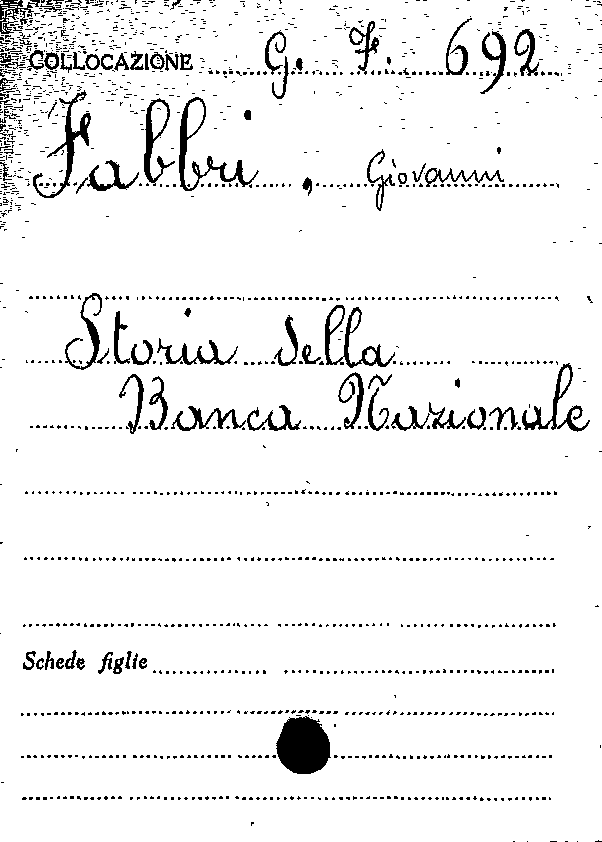 COLLOCAZIONE G. F. 692
Fabbri, Giovanni
Storia della
Banca Nazionale
Schede figlie